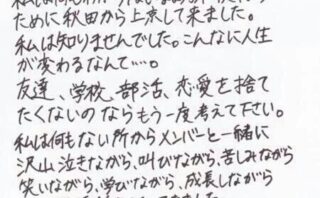 ために秋田から上京して来ました。
私は知りませんでした。こんなに人生
が変わるなんて…。
友達、学校、部活、恋愛を捨て
たくないのならもう一度考えて下さい。
私は何もない所からメンバーと一緒に
沢山泣きながら、叫びながら、苦しみながら
笑いながら、学びながら、成長しながら